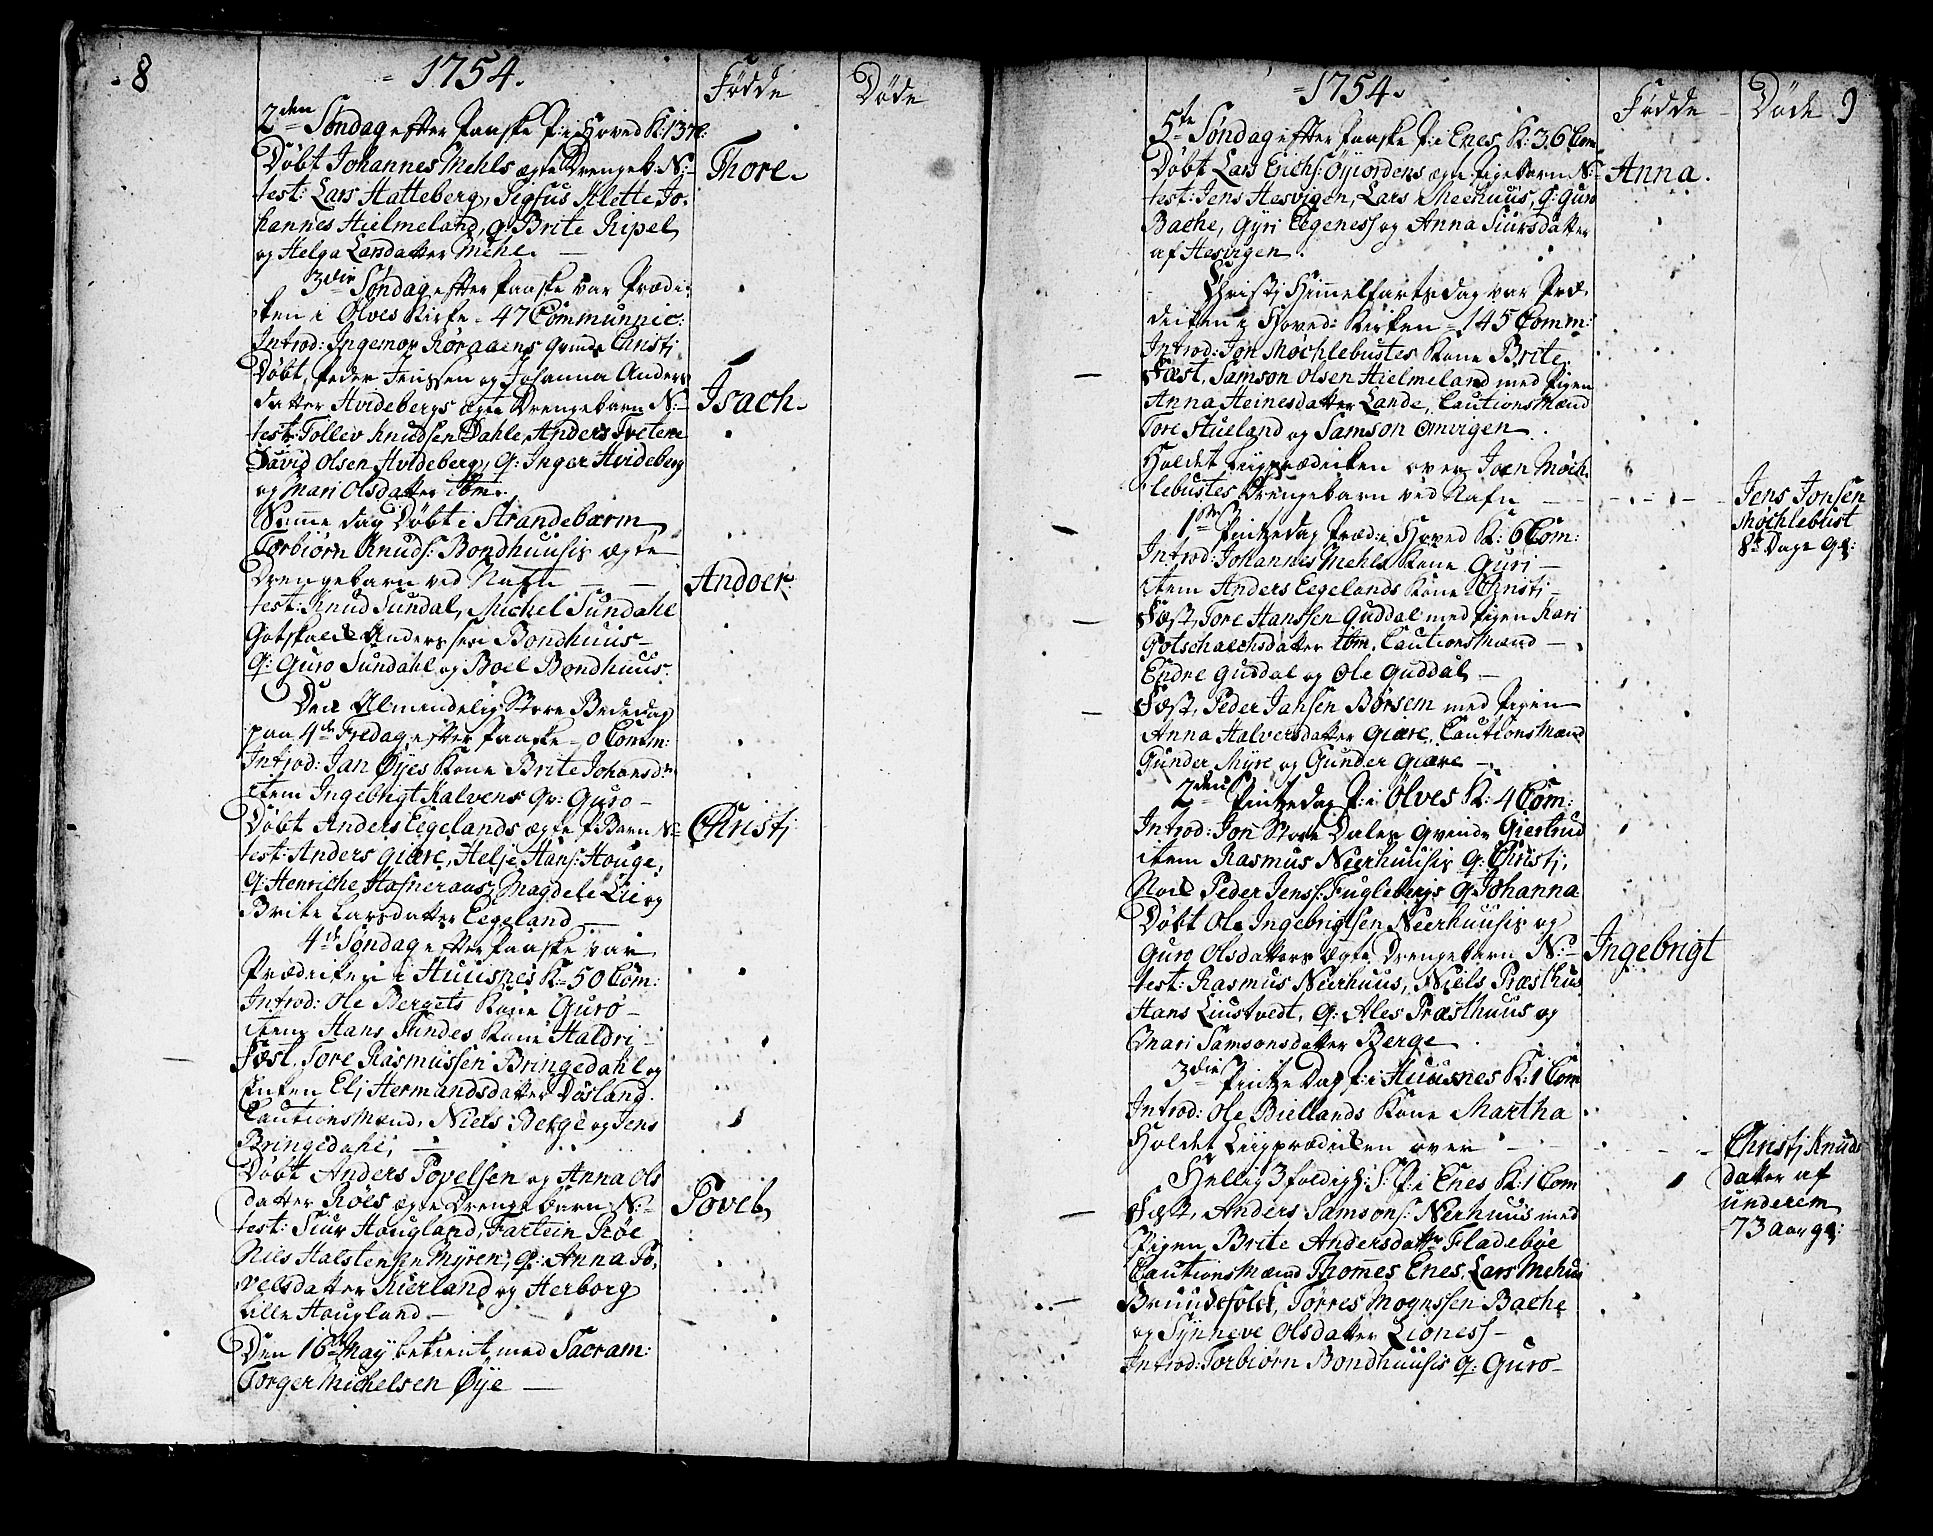 8
1754.
Fødde
Døde
2den Søndag efter Paaske P: i Hoved K: 137 C:
Døbt Johannes Mehls ægte Drengeb. N:
Thore.
test: Lars Hatteberg, Sigfus Klette Jo-
hannes Hielmeland, Q: Brite Ripel
og Helga Larsdatter Mehl.
3die Søndag efter Paaske var Prædi-
ken i Ølves Kirke. 47 Communic:
Introd: Ingemor Røraaens Qvinde Christj
Døbt, Peder Jenssen og Johanna Anders
datter Hvidebergs ægte Drengebarn N:
Isach.
test: Tollev Knudsen Dahle, Anders Tvetene
David Olsen Hvideberg, Q: Inger Hvideberg
og Mari Olsdatter ibm.
Samme dag Døbt i Strandebarm
Torbiørn Knuds: Bondhuusis ægte
Drengebarn ved Nafn
Andoer
test: Knud Sundal, Michel Sundahl
Gotskalck Anderssen Bondhuus
Q: Guro Sundahl og Boel Bondhuus.
Den Almindelig Store Bededag
paa 4de Fredag efter Paaske - 0 Comm:
Introd: Jan Øyes Kone Brite Johansd:
item Ingebrigt Kalvens Qv: Guro
Døbt Anders Eegelands ægte P. Barn N:
Christj
test: Anders Giære, Helje Hans: Houge,
Q: Henriche Hafneraas, Magdele Lie og
Brite Larsdatter Eegeland
4de Søndag efter Paaske var
Prædiken i Huusnes K: 50 Com:
Introd: Ole Bergets Kone Guro
item Hans Tindes Kone Haldri
Fæst, Tore Rasmussen Bringedahl og
Enken Elj Hermandsdatter Døsland.
Cautions Mænd, Niels Berge og Jens
Bringedahl;
Døbt Anders Povelsen og Anna Ols
datter Røes ægte Drengebarn N:
Povel
test: Siur Hougland, Fartein Røe
Niels Halstensen Myren, Q: Anna Po-
velsdatter Kierland og Herborg
Lille Hougland
Den 16de May betient med Sacram:
Torger Michelsen Øye
1754.
Fødde
Døde 9
5te Søndag efter Paaske P: i Enes K: 36 Com
Døbt Lars Erichs: Øyiordens ægte Pigebarn N:
Anna.
test: Jens Hesvigen, Lars Meehuus, Q: Guro
Bache, Gyri Eegeness og Anna Siursdatter
af Hesvigen.
Christj Himmelfartsdag var Præ-
diken i Hoved: Kirken 145 Comm:
Introd: Jon Møchlebustes Kone Brite.
Fæst, Samson Olsen Hielmeland med Pigen
Anna Heinesdatter Lande, Cautions Mænd
Tore Stueland og Samson Omvigen
Holdet Liigprædiken over Joen Møch-
lebustes Drengebarn ved Nafn
Jens Jonsen
Møchlebust
8te Dage gl:
1ste Pintzedag Præd: i Hoved K: 6 Com:
Introd: Johannes Mehls Kone Guri
item Anders Eegelands Kone Christj
Fæst, Tore Hanssen Guddal med Pigen Kari
Gotschalchsdatter ibm, Cautions Mænd
Endre Guddal og Ole Guddal
Fæst, Peder Jahsen Børsem med Pigen
Anna Halversdatter Giære, Cautions Mænd
Gunder Myre og Gunder Giære
2den Pintzedag P: i Ølves K: 4 Com:
Introd: Jon Store Dales Qvinde Giertrud
item Rasmus Neerhuusis Q: Christj,
Nock Peder Jenss: Fuglebergs Q Johanna
Døbt Ole Ingebrigtsen Neerhuusis og
Guro Olsdatters ægte Drengebarn N:
Ingebrigt
test: Rasmus Neerhuus, Niels Præsthuus
Hans Liustvedt, Q: Ales Præsthuus og
Mari Samsonsdatter Berge
3die Pintze Dag P: i Huusnes K: 1 Com
Introd: Ole Biellands Kone Martha
Holdet Liigprædiken over
Christj Knuds
datter af
underem
73 aar gl:
Hellig 3foldigh: S: P: i Enes K: 1 Com
Fæst, Anders Samsons: Nerhuus med
Pigen Brite Andersdatter Fladebøe
Cautions Mænd Thommes Enes, Lars Mehuus
Bruudefolck, Tørres Mognssen Bache
og Synneve Olsdatter Lioness
Introd: Torbiørn Bondhuusis Q: Guro